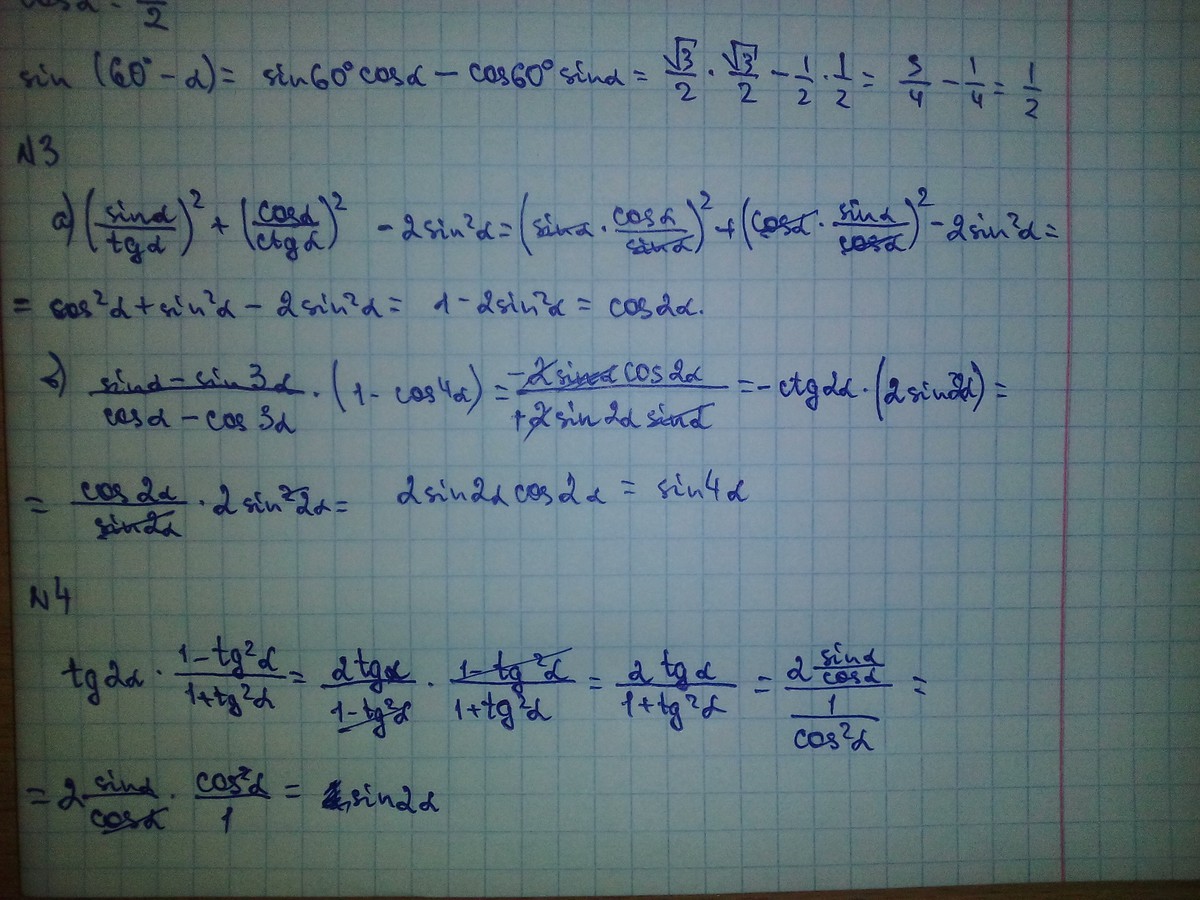 cosα = —/2
sin (60° - α) = sin60° cosα - cos60° sinα = √3/2 · √3/2 - 1/2 · 1/2 = 3/4 - 1/4 = 1/2
N3
а) (sinα/tgα)² + (cosα/ctgα)² - 2sin²α = (sinα · cosα/sinα)² + (cosα · sinα/cosα)² - 2sin²α =
= cos²α + sin²α - 2sin²α = 1 - 2sin²α = cos2α.
в) (sinα - sin3α)/(cosα - cos3α) · (1 - cos4α) = (-2sinα cos2α)/(+2sin2α sinα) = -ctg2α · (2sin²2α) =
= cos2α/sin2α · 2sin²2α = 2sin2α cos2α = sin4α
N4
tg2α · (1-tg²α)/(1+tg²α) = 2tgα/(1-tg²α) · (1-tg²α)/(1+tg²α) = 2tgα/(1+tg²α) = (2 sinα/cosα)/(1/cos²α) =
= 2 sinα/cosα · cos²α/1 = sin2α